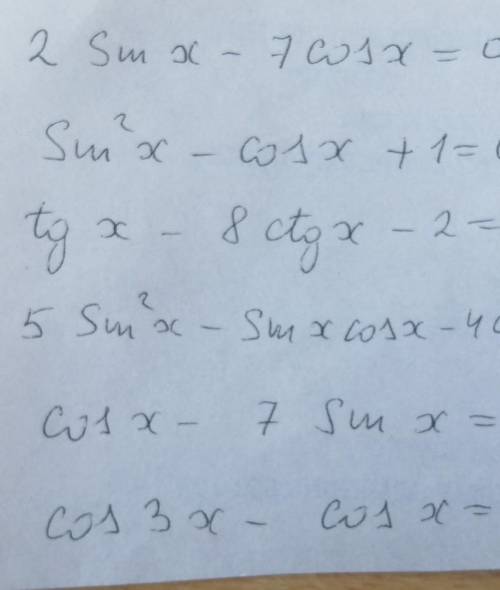 2 Sin x - 7 cos x =
Sin²x - cos x + 1 =
tg x - 8 ctg x - 2 =
5 Sin²x - Sin x cos x - 4
cos x - 7 Sin x =
cos 3x - cos x =